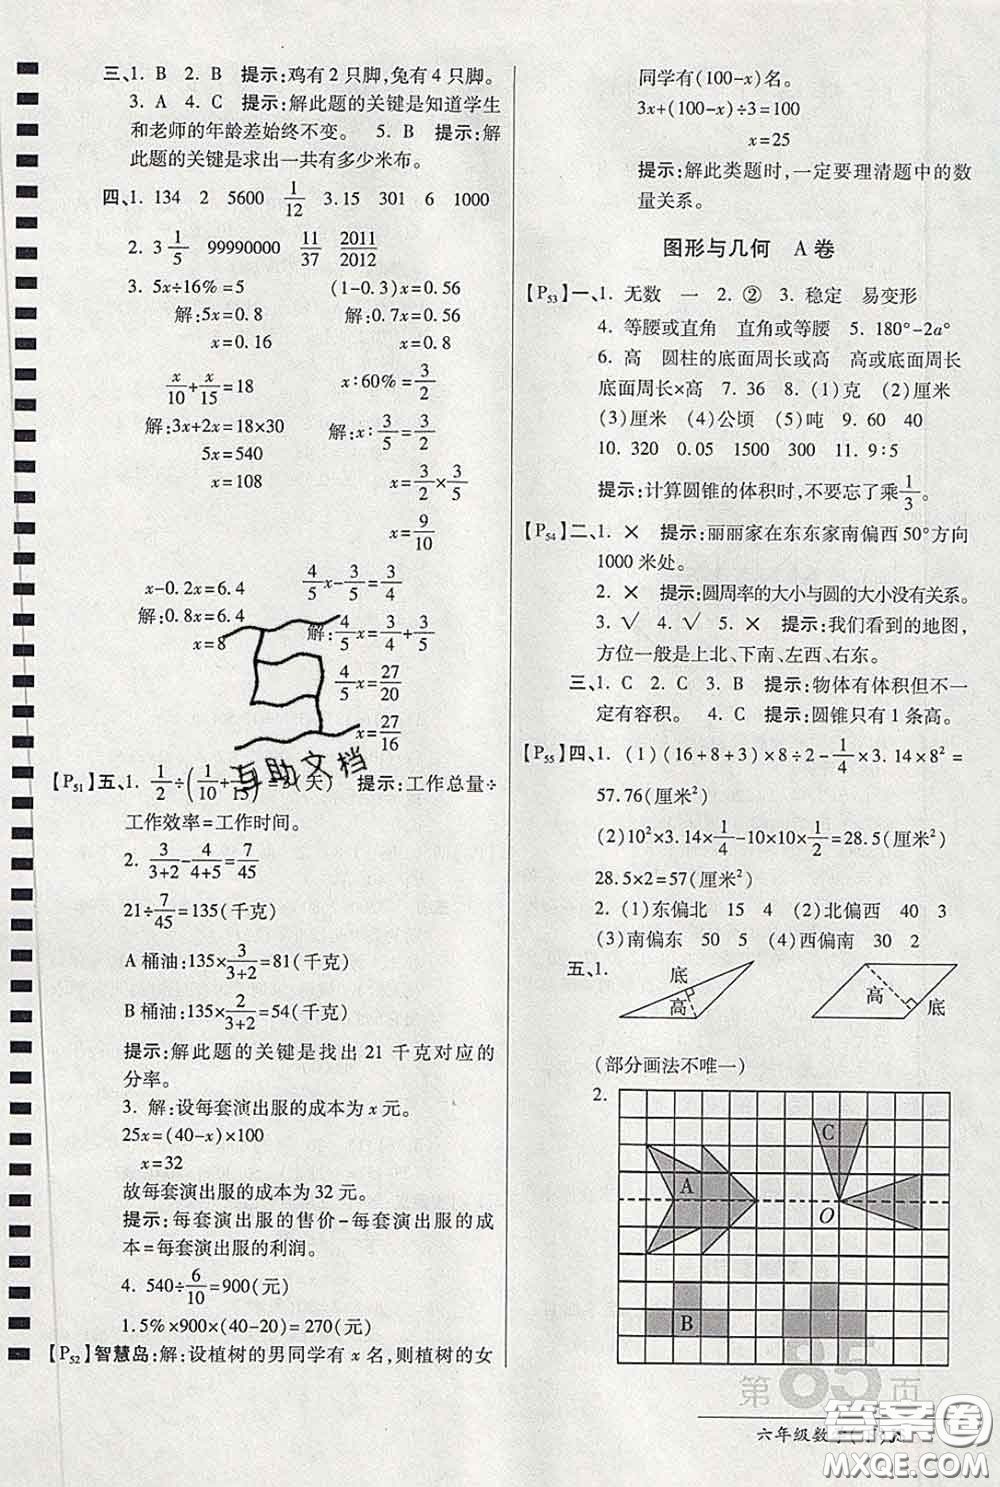 三、1. B 2. B 提示:鸡有2只脚,兔有4只脚。
3. A 4. C 提示:解此题的关键是知道学生
和老师的年龄差始终不变。 5. B 提示:解
此题的关键是求出一共有多少米布。
四、1. 134 2 5600 1/12 3.15 301 6 1000
2. 3 1/5 99990000 11/37 2011/2012
3. 5x÷16%=5 (1-0.3)x=0.56
解:5x=0.8 解:0.7x=0.56
x=0.16 x=0.8
x/10+x/15=18 x:60%=3/2
解:3x+2x=18×30 解:x:3/5=3/2
5x=540 x=3/2×3/5
x=108 x=9/10
x-0.2x=6.4 4/5x-3/5=3/4
解:0.8x=6.4 解:4/5x=3/4+3/5
x=8 4/5x=27/20
x=27/16
【P51】五、1. 1/2÷(1/10+1/15)=3(天) 提示:工作总量÷
工作效率=工作时间。
2. 3/(3+2)-4/(4+5)=7/45
21÷7/45=135(千克)
A桶油:135×3/(3+2)=81(千克)
B桶油:135×2/(3+2)=54(千克)
提示:解此题的关键是找出21千克对应的
分率。
3. 解:设每套演出服的成本为x元。
25x=(40-x)×100
x=32
故每套演出服的成本为32元。
提示:每套演出服的售价-每套演出服的成
本=每套演出服的利润。
4. 540÷6/10=900(元)
1.5%×900×(40-20)=270(元)
【P52】智慧岛:解:设植树的男同学有x名,则植树的女
同学有(100-x)名。
3x+(100-x)÷3=100
x=25
提示:解此类题时,一定要理清题中的数
量关系。
图形与几何 A卷
【P53】一、1. 无数 一 2. ② 3. 稳定 易变形
4. 等腰或直角 直角或等腰 5. 180°-2a°
6. 高 圆柱的底面周长或高 高或底面周长
底面周长×高 7. 36 8. (1)克 (2)厘米
(3)厘米 (4)公顷 (5)吨 9. 60 40
10. 320 0.05 1500 300 11. 9:5
提示:计算圆锥的体积时,不要忘了乘1/3。
【P54】二、1. × 提示:丽丽家在东东家南偏西50°方向
1000米处。
2. × 提示:圆周率的大小与圆的大小没有关系。
3. √ 4. √ 5. × 提示:我们看到的地图,
方位一般是上北、下南、左西、右东。
三、1. C 2. C 3. B 提示:物体有体积但不一
定有容积。 4. C 提示:圆锥只有1条高。
【P55】四、1. (1)(16+8+3)×8÷2-1/4×3.14×8²=
57.76(厘米²)
(2)10²×3.14×1/4-10×10×1/2=28.5(厘米²)
28.5×2=57(厘米²)
2. (1)东偏北 15 4 (2)北偏西 40 3
(3)南偏东 50 5 (4)西偏南 30 2
五、1.
底
高
高
底
(部分画法不唯一)
2.
C
A
O
B
第85页
六年级数学
互助文档
答案圈
MXQE.COM